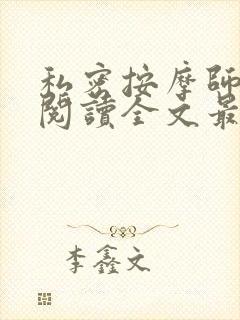 私密按摩師
閱讀全文最
李鑫文